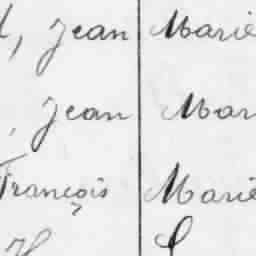 , Jean Marie
, Jean Mar
François Marie